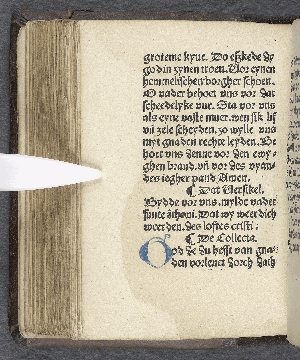 groteme kyue. Do eschede dy
god in zynen troen. Uor eynen
hemmelischen borgher schoen.
O vader behoet vns vor dat
scheedelyke vur. Sta vor vns
als eyne vaste muer. wen sik lif
vn zele scheyden. zo wylle vns
myt gnaden rechte leyden. Be
hoet vns denne vor den ewy-
ghen brand. vn vor des vyan-
des iegher pand Amen.
¶ Dat Versikel.
Bydde vor vns. mylde vader
sunte āthoni. Dat wy wert dich
werden. des loftes cristi.
¶ De Collecta.
God de du hefft van gna-
den vorlenet dorch dath